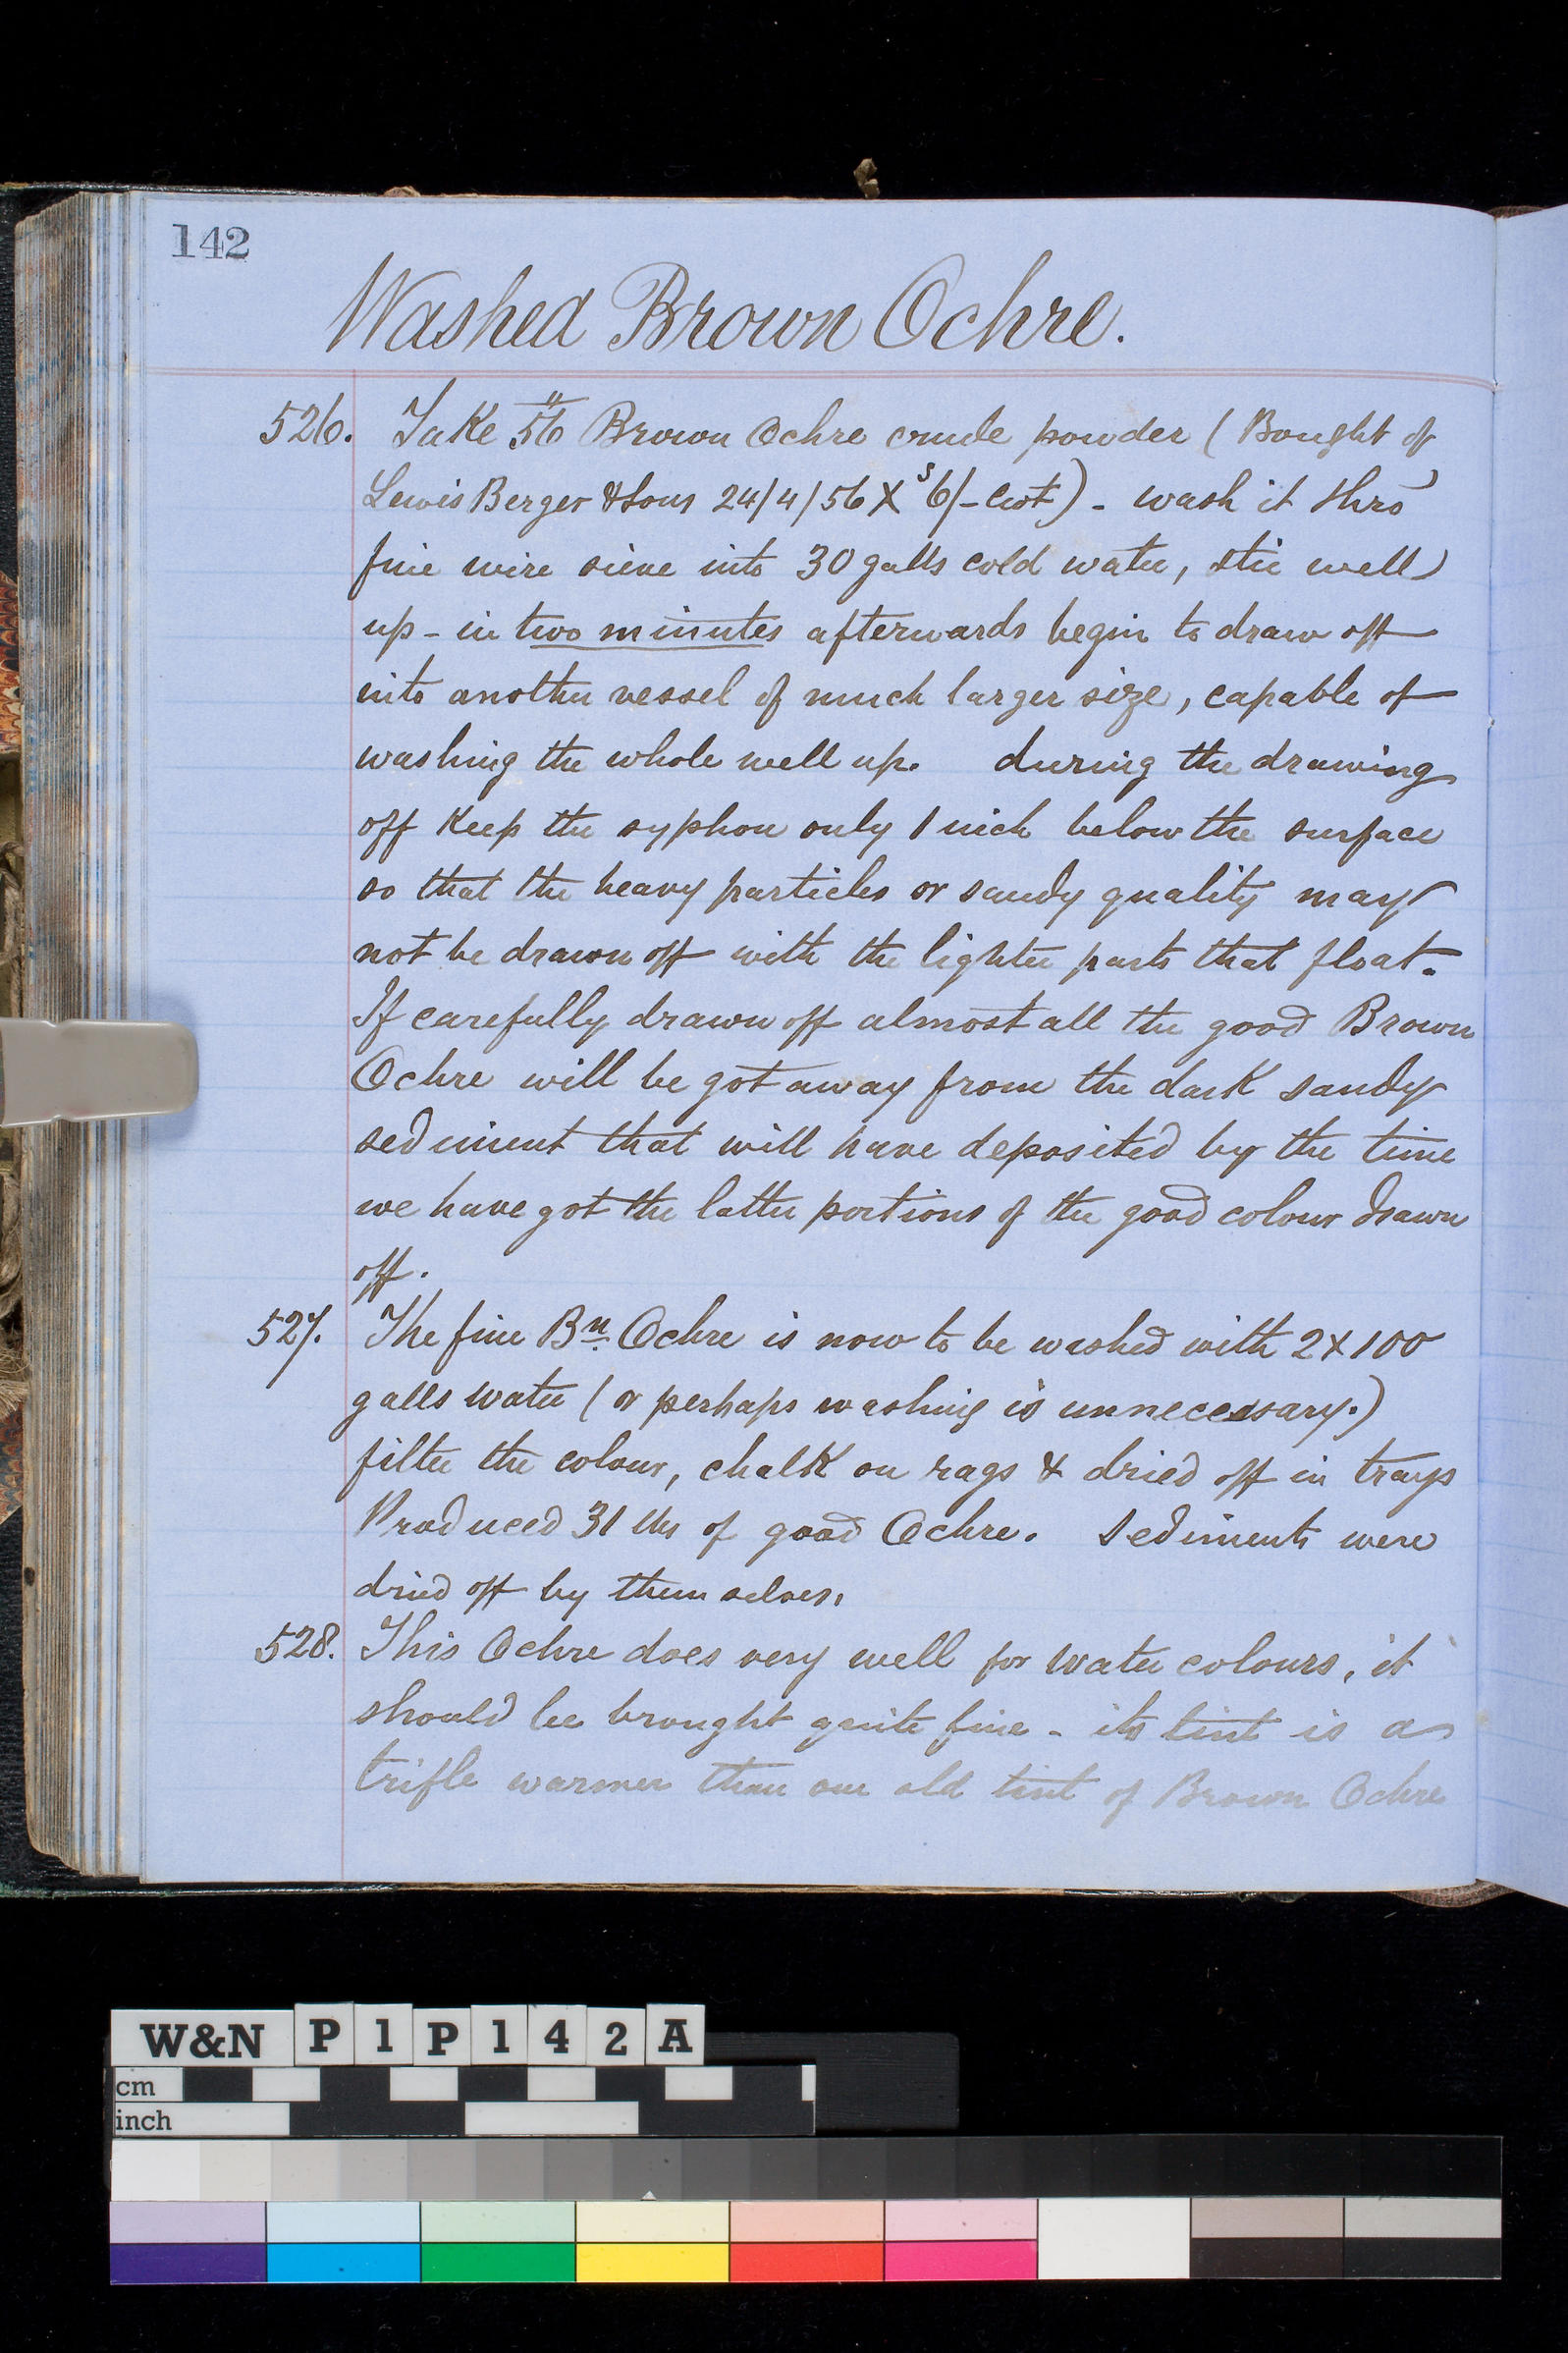 142
Washed Brown Ochre.
526. Take 56 Brown Ochre crude powder (Bought of
Lewis Berger & Sons 24/4/56 X 6/- Cwt) - wash it thro'
fine wire sieve into 30 galls cold water, stir well
up - in two minutes afterwards begin to draw off
into another vessel of much larger size, capable of
washing the whole well up. during the drawing
off keep the syphon only 1 inch below the surface
so that the heavy particles or sandy quality may
not be drawn off with the lighter parts that float.
If carefully drawn off almost all the good Brown
Ochre will be got away from the dark sandy
sediment that will have deposited by the time
we have got the latter portions of the good colour drawn
off.
527. The fine Bn. Ochre is now to be washed with 2 x 100
galls water (or perhaps washing is unnecessary.)
filter the colour, chalk on rags & dried off in trays
Produced 31 lbs of good Ochre. Sediments were
dried off by themselves.
528. This Ochre does very well for Water colours, it
should be brought quite fine - its tint is a
trifle warmer than our old tint of Brown Ochre
W&N P1P142A
cm
inch